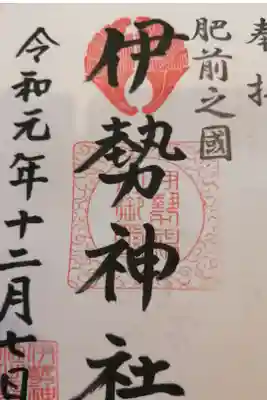 奉拝
肥前之國
伊勢神社
令和元年十二月七日